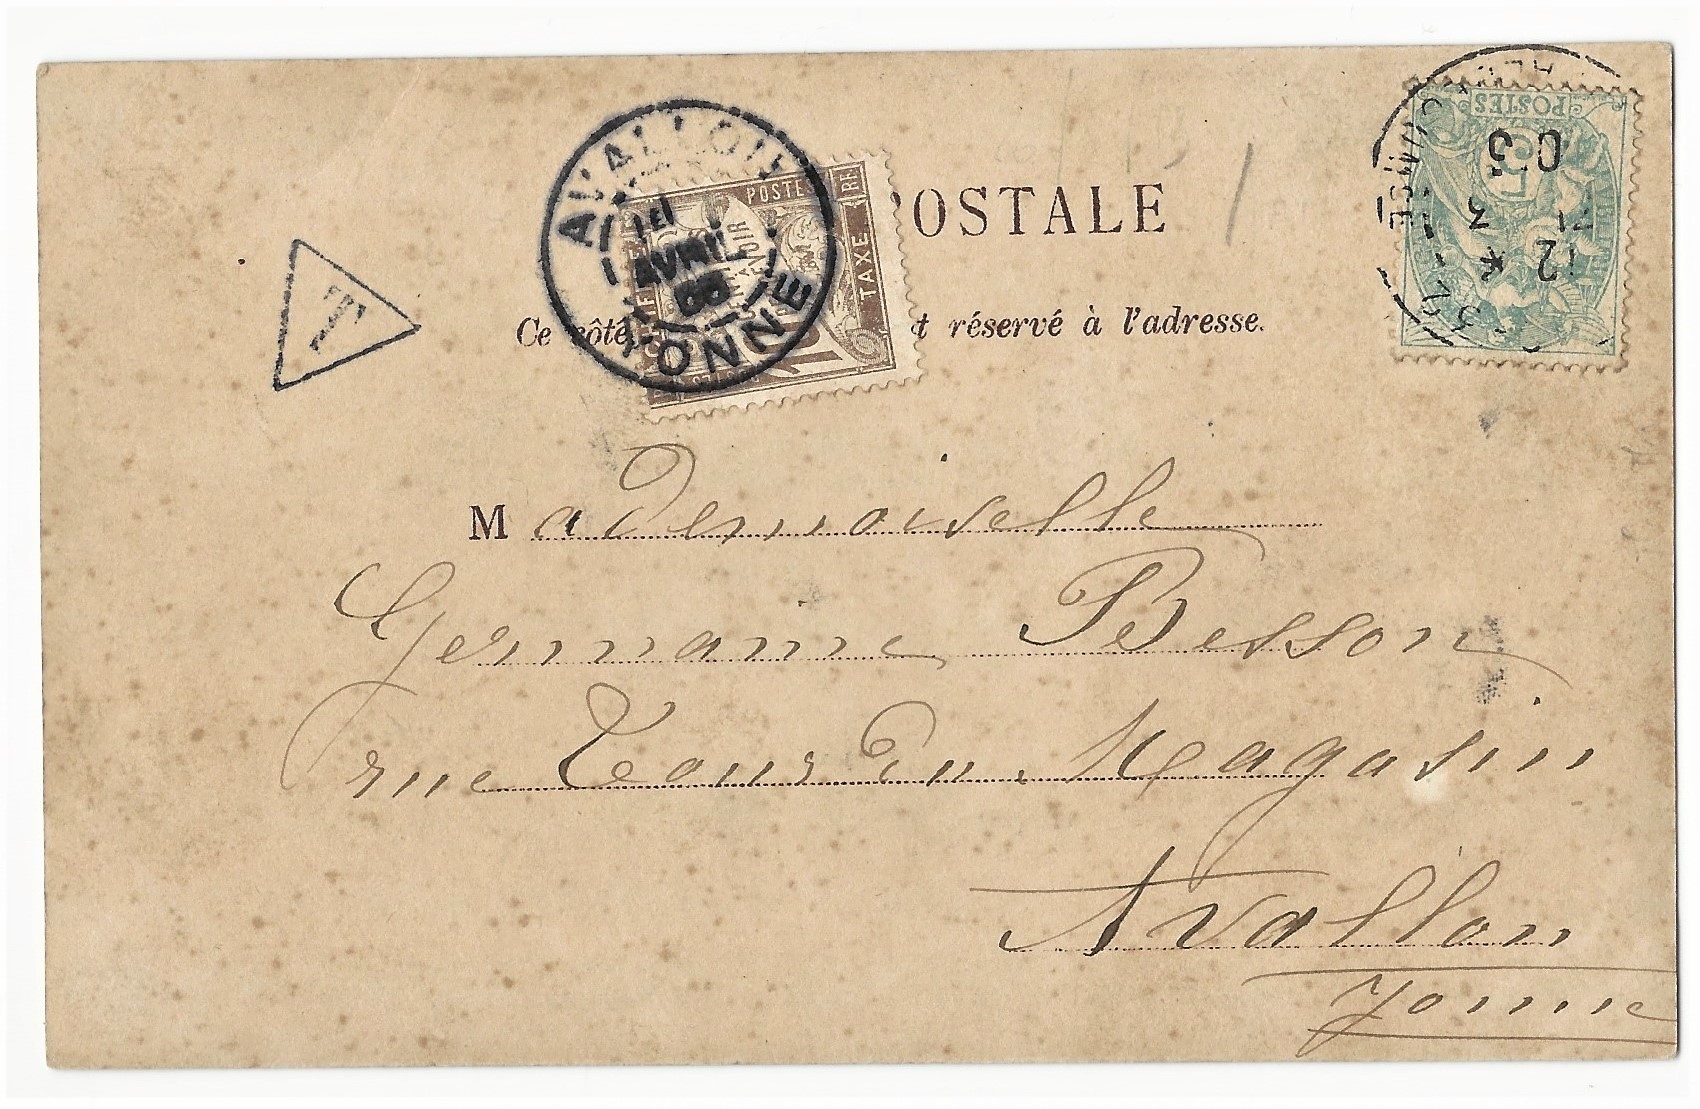 POSTALE
Ce côté t réservé à l'adresse.
T
AVALLON
1E
AVRIL
YONNE
POSTE
TAXE
POSTES
5
12
03
Mademoiselle
Germaine Besson
rue Tour Du Magasin
Avallon
Yonne